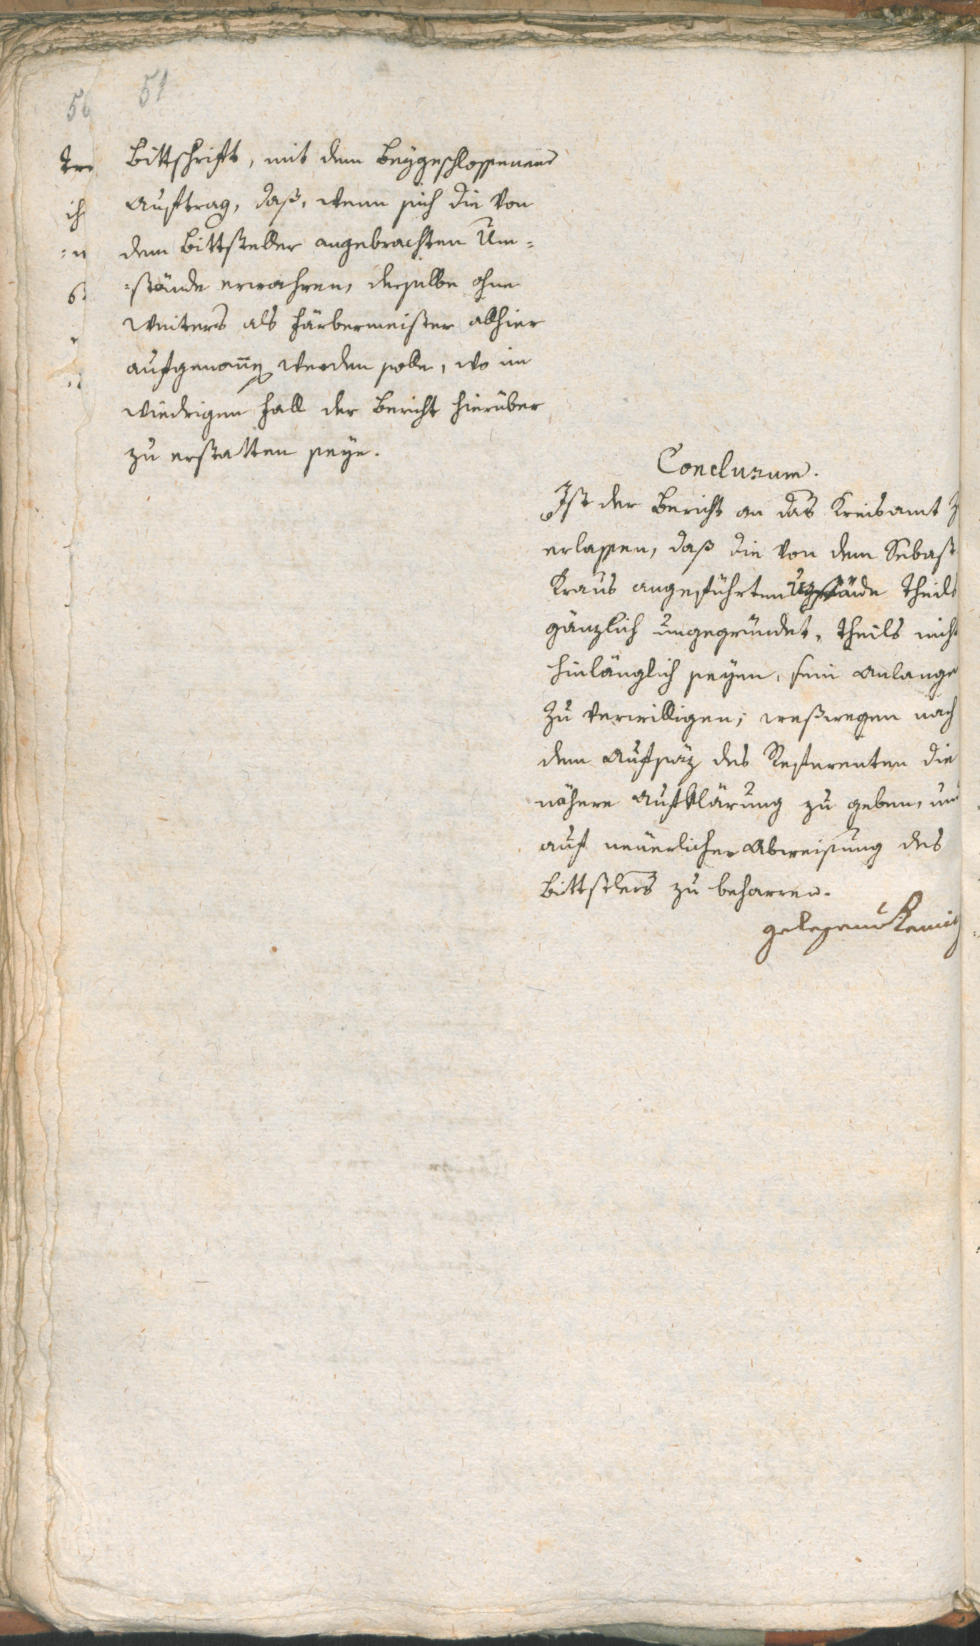 51
Bittschrift, mit dem beygeschlossenen
Auftrag, daß, wenn sich die von
dem Bittsteller angebrachten Um=
=stände erwahren, derselbe ohne
weiters als Färbermeister allhier
aufgenom̄en werden solle, wo im
wiedrigen Fall der Bericht hierüber
zu erstatten seye.
Conclusum.
Ist der Bericht an das Kreisamt z
erlassen, daß die von dem Sebast
Kraus angeführten Umstände theils
gänzlich ungegründet, theils nicht
hinlänglich seyen, sein Anlangen
zu verwilligen; weßwegen nach
dem Aufsaz des Referenten die
nähere Aufklärung zu geben, und
auf neuerlicher Abweisung des
Bittstlers zu beharren.
gelesen